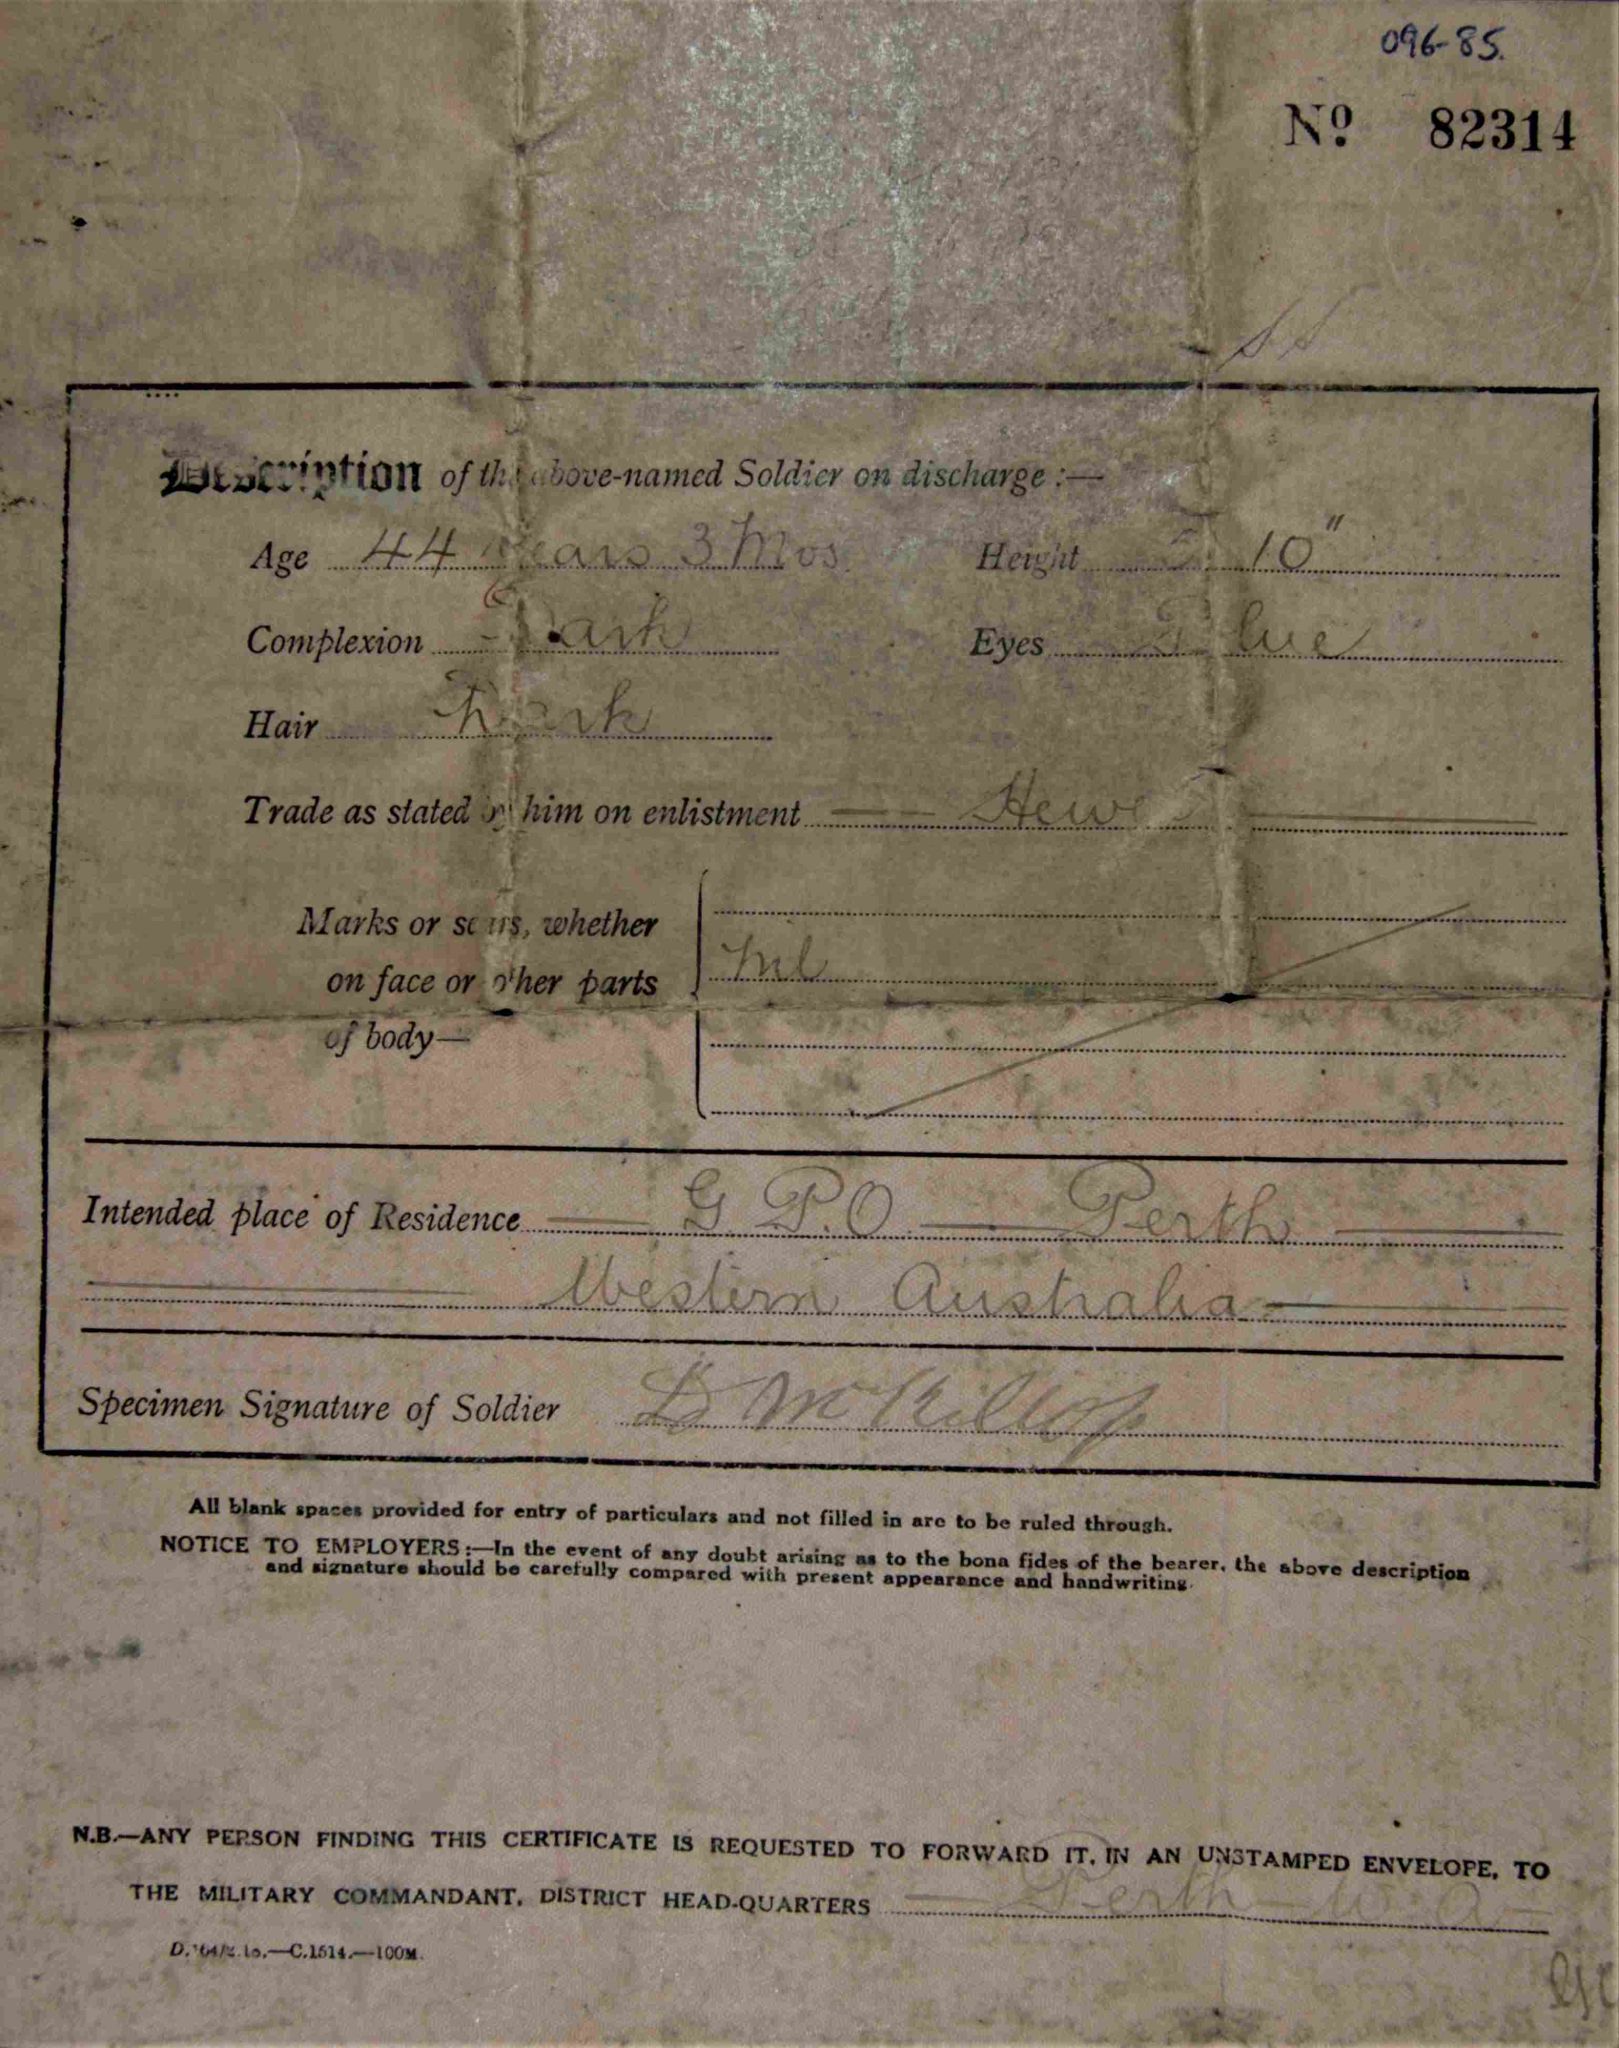 096-85.
No 82314
Description of the above-named Soldier on discharge :—
Age 44 Years 3 Mos. Height 5' 10"
Complexion Dark Eyes Blue
Hair Dark
Trade as stated by him on enlistment — Hewer —
Marks or scars, whether
on face or other parts Nil
of body—
Intended place of Residence — G.P.O — Perth —
— Western Australia —
Specimen Signature of Soldier D McKillop
All blank spaces provided for entry of particulars and not filled in are to be ruled through.
NOTICE TO EMPLOYERS:—In the event of any doubt arising as to the bona fides of the bearer, the above description
and signature should be carefully compared with present appearance and handwriting.
N.B.—ANY PERSON FINDING THIS CERTIFICATE IS REQUESTED TO FORWARD IT, IN AN UNSTAMPED ENVELOPE, TO
THE MILITARY COMMANDANT, DISTRICT HEAD-QUARTERS — Perth W.A —
C.1514.—100M.